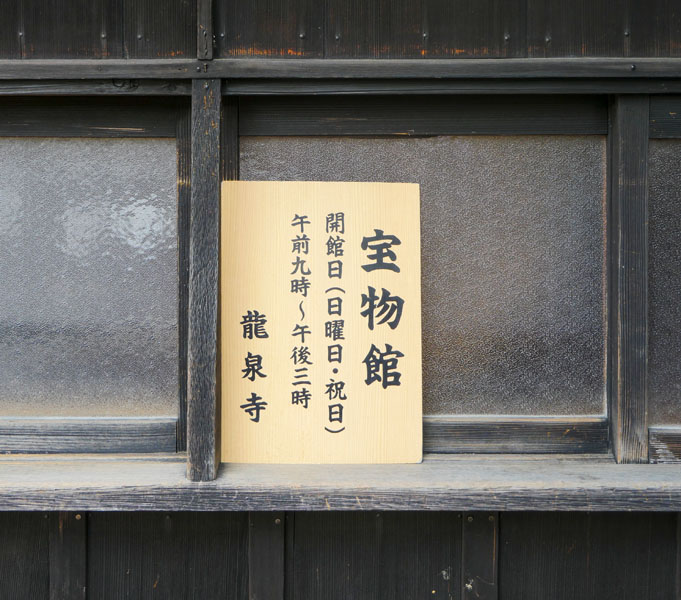 宝物館
開館日(日曜日・祝日)
午前九時～午後三時
龍泉寺